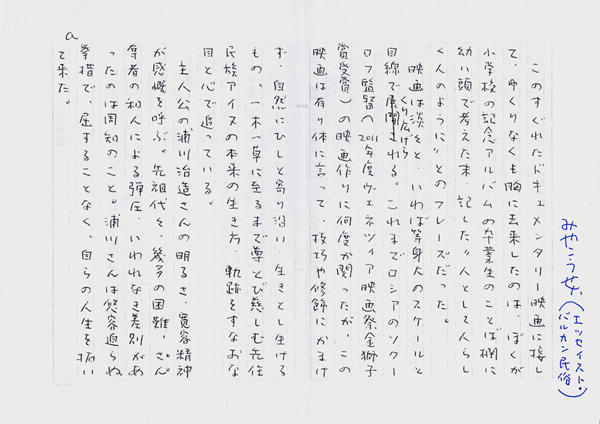 みやこうせい(エッセイスト・
バルカン民俗)
このすぐれたドキュメンタリー映画に接し
て、ゆくりなくも胸に去来したのは、ぼくが
小学校の記念アルバムの卒業生のことば欄に
幼い頭で考えた末、記した"人として人らし
く人のように"とのフレーズだった。
映画は淡々と、いわば等身大のスケールと
目線で展開される。これまでロシアのソクー
くり広げら
ロフ監督(2011年度ヴェネツィア映画祭金獅子
賞受賞)の映画作りに何度か関ったが、この
映画は有り体に言って、技巧や修飾にかまけ
ず、自然にひしと寄り沿い、生きとし生ける
もの、一木一草に至るまで尊とび慈しむ先住
民族アイヌの本来の生き方、軌跡をすなおな
目と心で追っている。
主人公の浦川治造さんの明るさ、寛容精神
が感慨を呼ぶ。先祖代々、幾多の困難、さん
奪者の和人による弾圧、いわれなき差別があ
ったのは周知のこと。浦川さんは悠容迫らぬ
挙措で、屈することなく、自らの人生を拓い
て来た。